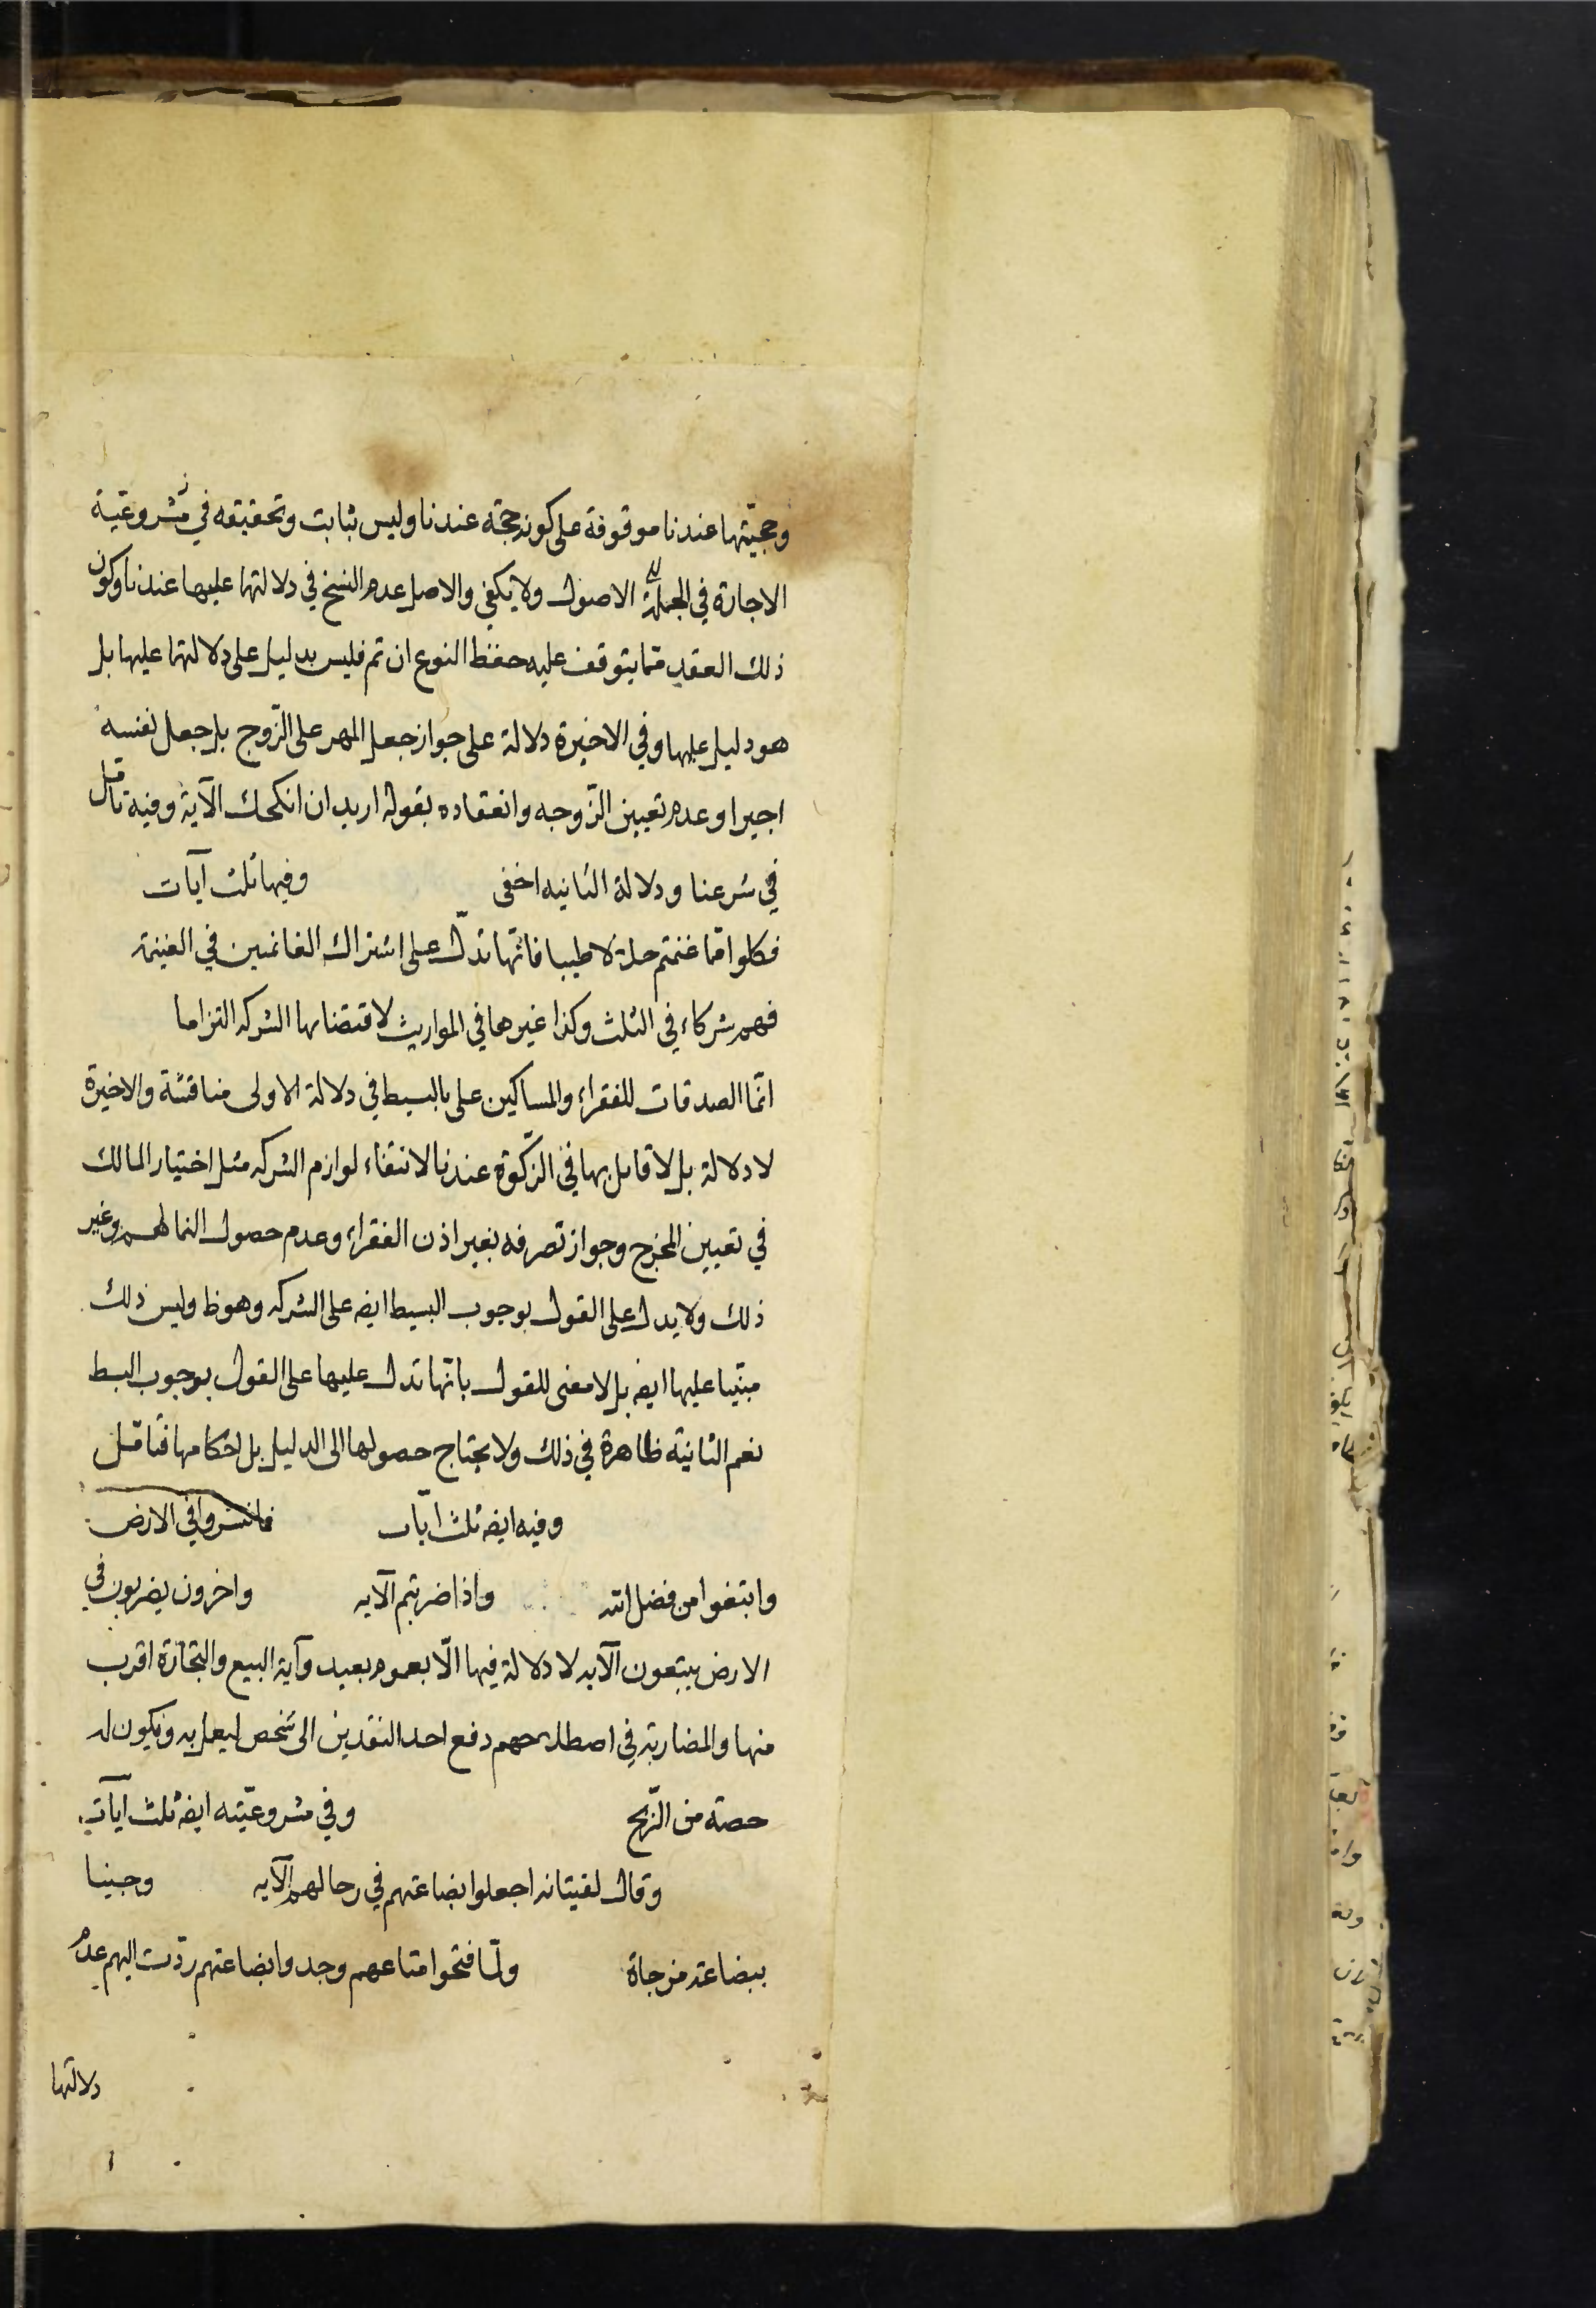 وحجيّتها عندنا موقوفة على كونه حجة عندنا وليس بثابت وتحقيقه في مشروعيّة
الاجارة في الجملة الاصول ولا يكفي والاصل عدم النسخ في دلالتها عليها عندنا وكون
ذلك العقد ممّا يتوقف عليه حفظ النوع ان تم فليس بدليل على دلالتها عليها بل
هو دليل عليها وفي الاخيرة دلالة على جواز جعل المهر على الزّوج بل جعل نفسه
اجيرا وعدم تعيين الزّوجه وانعقاده بقوله اريد ان انكحك الآية وفيه تامّل
في شرعنا ودلالة الثانيه اخفى وفيها ثلث آيات
فكلوا ممّا غنمتم حلالا طيبا فانّها تدلّ على اشتراك الغانمين في الغنيمة
فهم شركاء في الثلث وكذا غيرها في المواريث لاقتضائها الشركه التزاما
انّما الصدقات للفقراء والمساكين على بالبسيط في دلالة الاولى مناقشة والاخيرة
لا دلالة بل لا قائل بها في الزّكوة عندنا لانتفاء لوازم الشركه مثل اختيار المالك
في تعيين المخرج وجواز تصرفه بغير اذن الفقراء وعدم حصول النما لهم وغير
ذلك ولا يدل على القول بوجوب البسيط ايضه على الشركه وهو ظ وليس ذلك
مبنيا عليها ايضه بل لا معنى للقول بانّها تدل عليها على القول بوجوب البسط
نعم الثانيّه ظاهرة في ذلك ولا يحتاج حصولها الى الدليل بل احكامها فتامّل
وفيه ايضه ثلث آيات فانتشروا في الارض
وابتغوا من فضل الله واذا ضربتم الآيه واخرون يضربون في
الارض يبتغون الآيه لا دلالة فيها الّا بعموم بعيد وآية البيع والتجارة اقرب
منها والمضاربة في اصطلاحهم دفع احد النقدين الى شخص ليعمل به ويكون له
حصة من الرّبح وفي مشروعيّته ايضه ثلث آيات
وقال لفتيانه اجعلوا بضاعتهم في رحالهم الآيه وجئنا
ببضاعة مزجاة ولمّا فتحوا متاعهم وجدوا بضاعتهم ردّت اليهم عدم
دلالتها